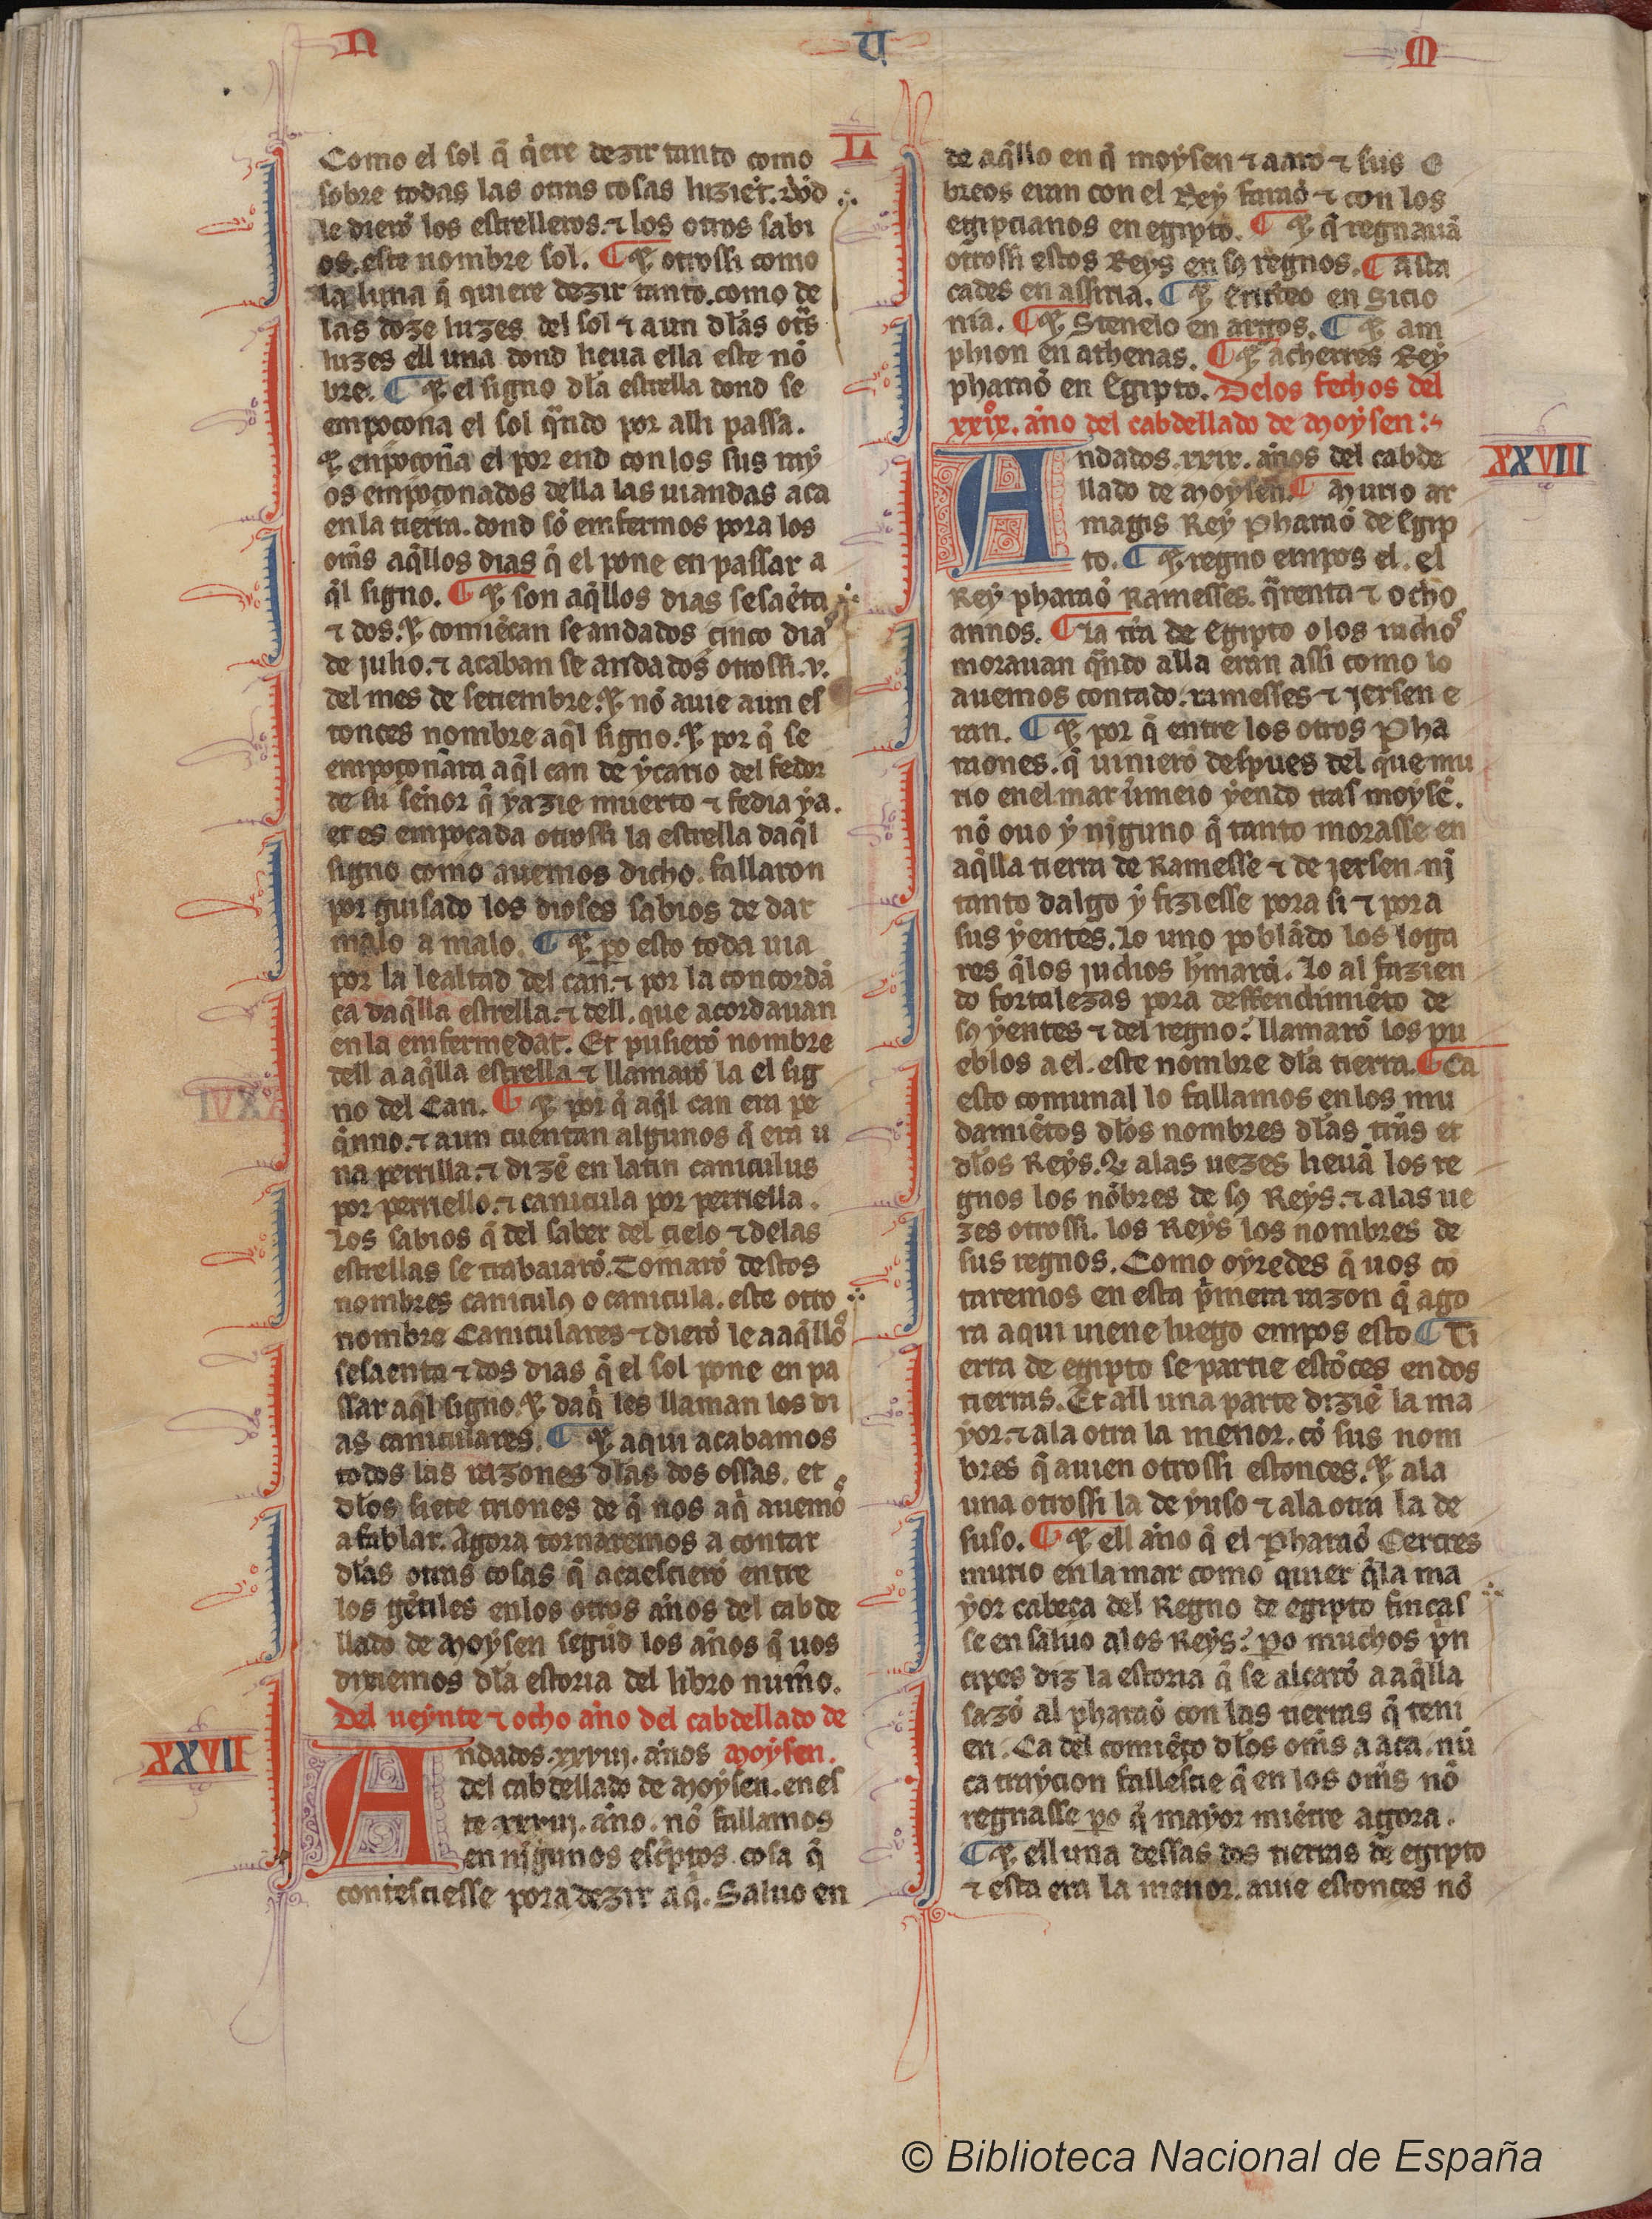 N U M
L
Como el sol q̃ q̃ere dezir tanto como
sobre todas las otras cosas luziẽt. Dõd
le dierõ los estrelleros. ⁊ los otros sabi
os. este nombre sol. ¶ E otrossi como
la luna q̃ quiere dezir tanto. como de
las doze luzes del sol ⁊ aun dlas ot̃s
luzes ell una dond lieua ella este nõ
bre. ¶ E el signo dla estrella dond se
empoçona el sol q̃ndo por alli passa.
E enpoçoña el por end con los sus ray
os empoçonados della las uiandas aca
en la tierra. dond sõ emfermos pora los
om̃s aq̃llos dias q̃ el pone en passar a
q̃l signo. ¶ E son aq̃llos dias sesaẽta
⁊ dos. E comiẽçan se andados cinco dias
de julio. ⁊ acaban se andados otrossi. v.
del mes de setiembre. E nõ auie aun es
tonces nombre aq̃l signo. E por q̃ se
empoçoñara aq̃l can de ycario del fedor
de su señor q̃ yazie muerto ⁊ fedia ya.
et es empoçada otrossi la estrella daq̃l
signo como auemos dicho. fallaron
por guisado los dioses sabios de dar
malo a malo. ¶ E po esto toda uia
por la lealtad del can. ⁊ por la concordã
ça daq̃lla estrella. ⁊ dell. que acordauan
en la emfermedat. Et pusierõ nombre
dell a aq̃lla estrella ⁊ llamarõ la el sig
no del Can. ¶ E por q̃ aq̃l can era pe
q̃nno. ⁊ aun cuentan algunos q̃ era u
na perrilla. ⁊ dizẽ en latin caniculus
por perriello. ⁊ canicula por perriella.
Los sabios q̃ del saber del cielo ⁊ delas
estrellas se trabaiarõ. Tomarõ destos
nombres caniculꝯ o canicula. este otro
nombre Caniculares ⁊ dierõ le a aq̃llos
sesaenta ⁊ dos dias q̃ el sol pone en pa
ssar aq̃l signo. E daq̃ les llaman los di
as caniculares. ¶ E aqui acabamos
todos las razones dlas dos ossas. et
dlos siete triones de q̃ nos aq̃ auemos
a fablar. Agora tornaremos a contar
dlas otras cosas q̃ acaescierõ entre
los gẽtiles en los otros años del cabde
llado de Moysen segũd los años q̃ uos
diziemos dla estoria del libro num̃o.
Del ueynte ⁊ ocho año del cabdellado de
XXVII
Andados. xxviij. años Moysen.
del cabdellado de Moysen. en es
te xxviij. año. nõ fallamos
en nĩgunos esc̃ptos cosa q̃
contesciesse pora dezir aq̃. Saluo en
de aq̃llo en q̃ moysen ⁊ aarõ ⁊ sus e
breos eran con el Rey faraõ ⁊ con los
egipcianos en egipto. ¶ E q̃ regnauã
otrossi estos Reys en sꝯ regnos. ¶ Asta
cades en assiria. ¶ E Eritreo en Sicio
nia. ¶ E Stenelo en argos. ¶ E am
phion en athenas. ¶ E acherres Rey
pharaõ en Egipto. Delos fechos del
xxix. año del cabdellado de Moysen:
XXVIII
Andados. xxix. años del cabde
llado de Moysen. ¶ Murio ar
magis Rey Pharaõ de Egip
to. ¶ E regno empos el. el
Rey pharaõ Ramesses. q̃renta ⁊ ocho
annos. ¶ La tr̃a de Egipto o los iudios
morauan q̃ndo alla eran assi como lo
auemos contado. ramesses ⁊ Jersen e
ran. ¶ E por q̃ entre los otros Pha
raones. q̃ uinierõ despues del que mu
rio en el mar uermeio yendo tras moysẽ.
nõ ouo y nĩguno q̃ tanto morasse en
aq̃lla tierra de Ramesse ⁊ de jersen. nĩ
tanto dalgo y fiziesse pora si ⁊ pora
sus yentes. Lo uno poblãdo los loga
res q̃ los judios h̃marã. Lo al fazien
do fortalezas pora deffendimiẽto de
sꝯ yentes ⁊ del regno: llamarõ los pu
eblos a el. este nombre dla tierra. ¶ Ca
esto comunal lo fallamos en los mu
damiẽtos dlos nombres dlas tr̃as et
dlos Reys. Q̃ alas uezes lieuã los re
gnos los nõbres de sꝯ Reys. ⁊ alas ue
zes otrossi. los Reys los nombres de
sus regnos. Como oyredes q̃ uos cõ
taremos en esta p̃mera razon q̃ ago
ra aqui uiene luego empos esto ¶ Ti
erra de egipto se partie estõces en dos
tierras. Et all una parte diziẽ la ma
yor. ⁊ ala otra la menor. cõ sus nom
bres q̃ auien otrossi estonces. E ala
una otrossi la de yuso ⁊ ala otra la de
suso. ¶ E ell año q̃ el Pharaõ Cercres
murio en la mar como quier q̃ la ma
yor cabeça del Regno de egipto fincas
se en saluo alos Reys: po muchos p̃n
cipes diz la estoria q̃ se alçarõ a aq̃lla
sazõ al pharaõ con las tierras q̃ teni
en. Ca del comiẽço dlos om̃s a aca. nũ
ca traycion fallescie q̃ en los om̃s nõ
regnasse po q̃ mayor miẽtre agora.
¶ E ell una dessas dos tierras de egipto
⁊ esta era la menor. auie estonces nõ
© Biblioteca Nacional de España